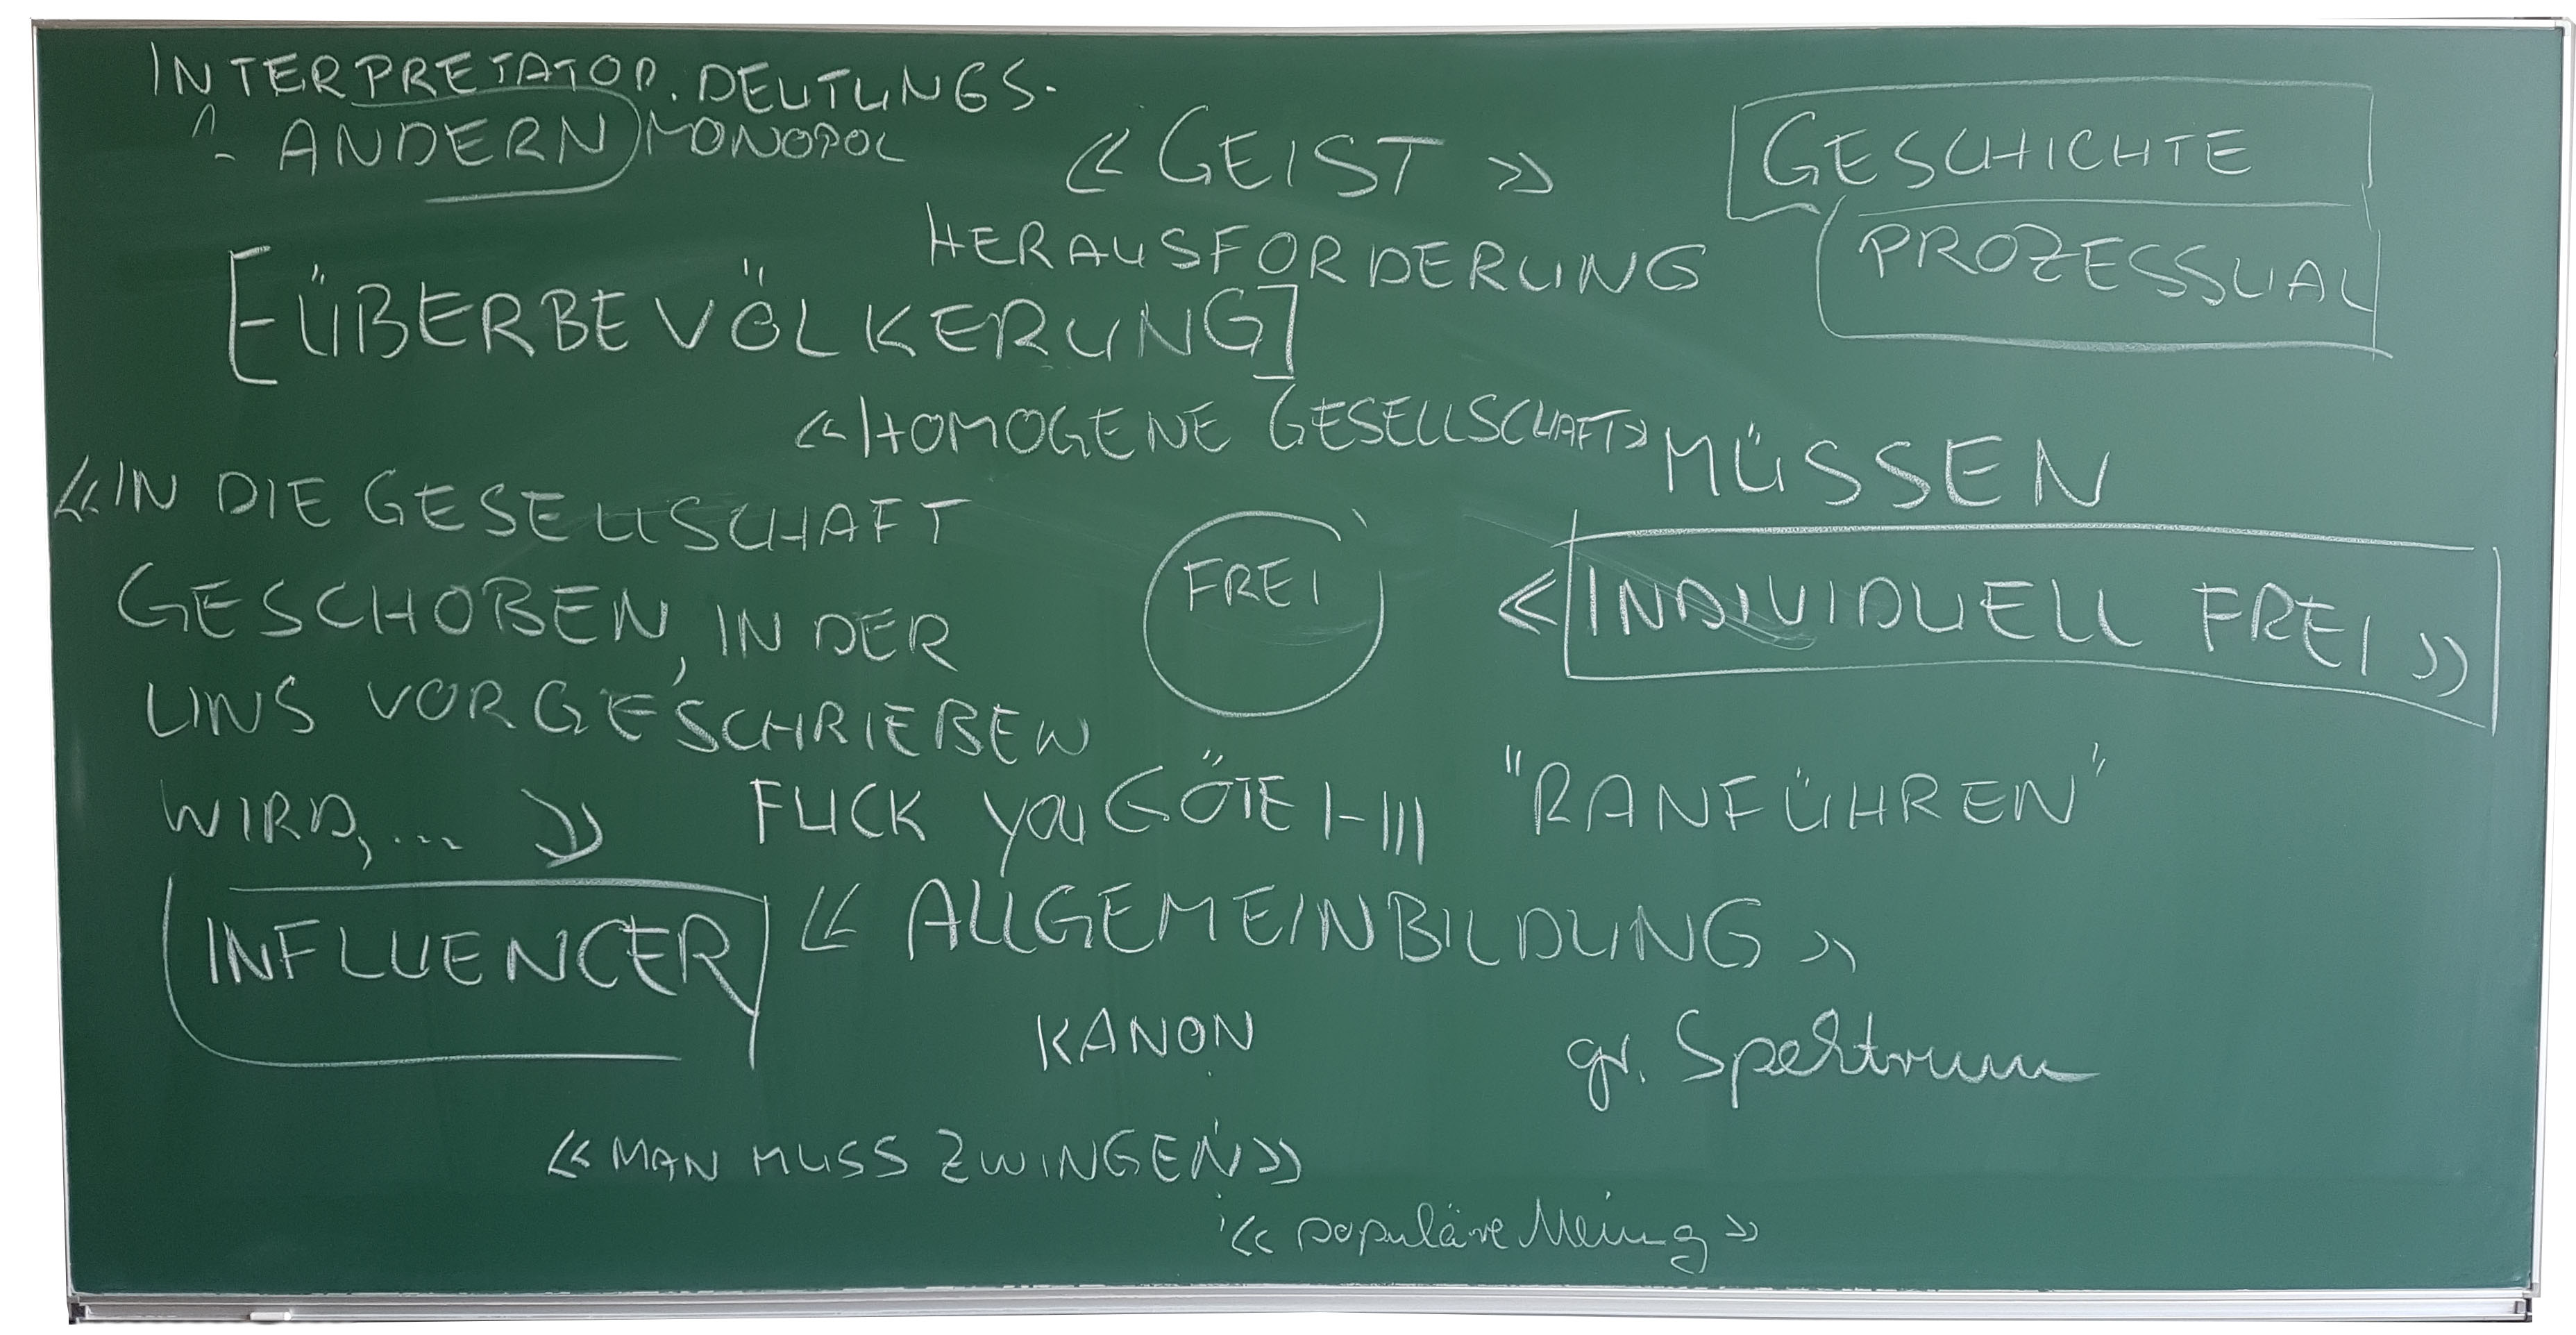 INTERPRETATOR. DEUTUNGS-
ANDERN MONOPOL
« GEIST »
GESCHICHTE
PROZESSUAL
HERAUSFORDERUNG
[ÜBERBEVÖLKERUNG]
«HOMOGENE GESELLSCHAFT»
MÜSSEN
«IN DIE GESELLSCHAFT
GESCHOBEN, IN DER
UNS VORGESCHRIEBEN
WIRD,... »
FREI
«INDIVIDUELL FREI»
FUCK you GÖTE I-III
"RANFÜHREN"
INFLUENCER
« ALLGEMEINBILDUNG »
KANON
gr. Spektrum
«MAN MUSS ZWINGEN»
«populäre Meinung»